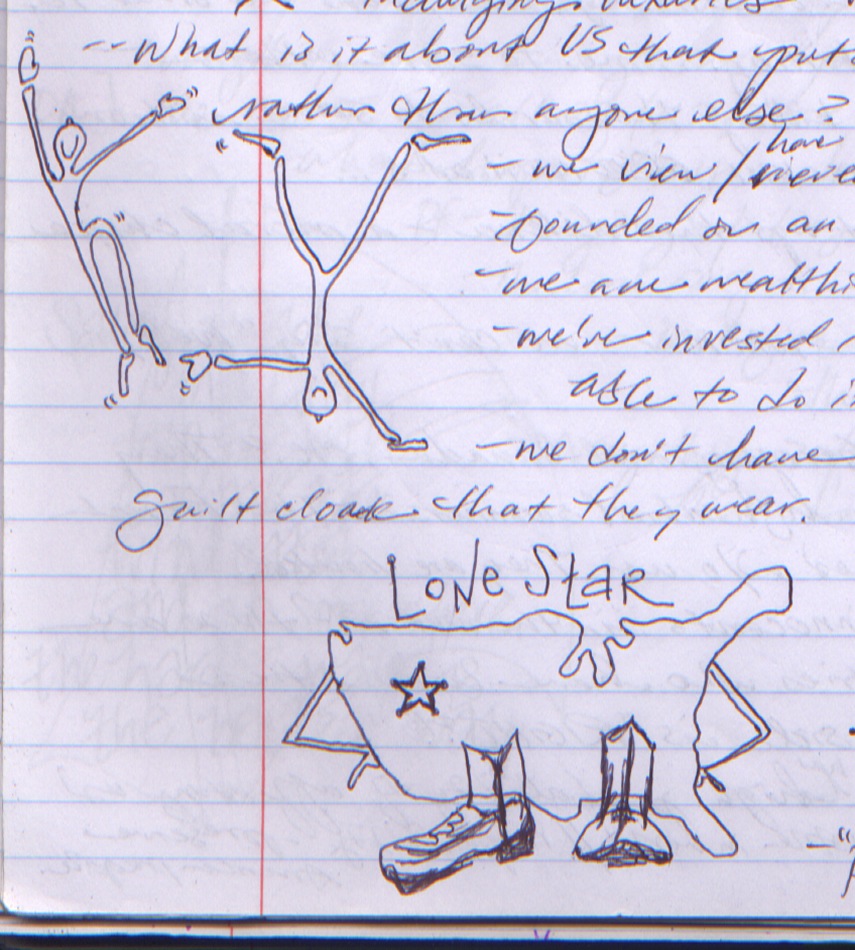 -- What is it about US that put
rather than anyone else?
have
- we view /
- founded on an
- we are wealthi
- we've invested
able to do i
- we don't have
guilt cloak that they wear.
LONE STAR